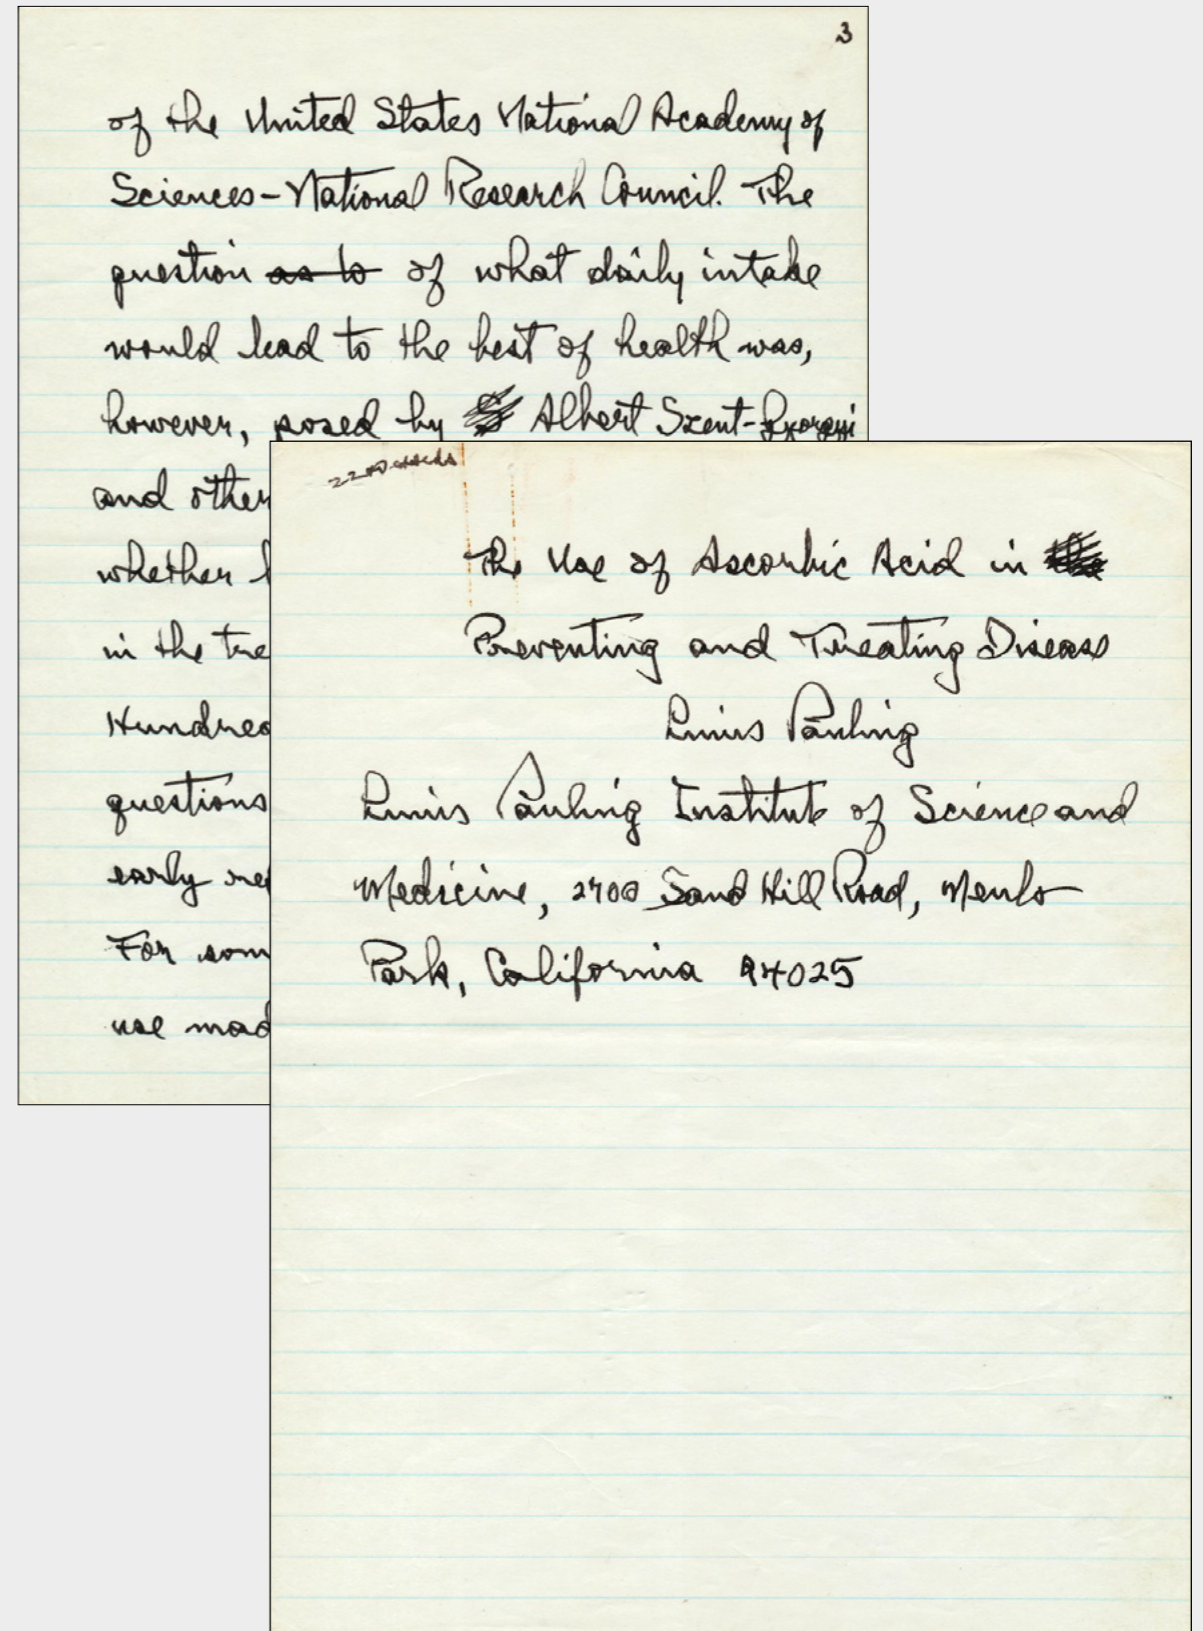 3
of the United States National Academy of
Sciences-National Research Council. The
question as to of what daily intake
would lead to the best of health was,
however, posed by Albert Szent-Gyorgyi
and other
whether
in the tre
Hundred
questions
early
For som
use mad
The Use of Ascorbic Acid in the
Preventing and Treating Disease
Linus Pauling
Linus Pauling Institute of Science and
Medicine, 2700 Sand Hill Road, Menlo
Park, California 94025